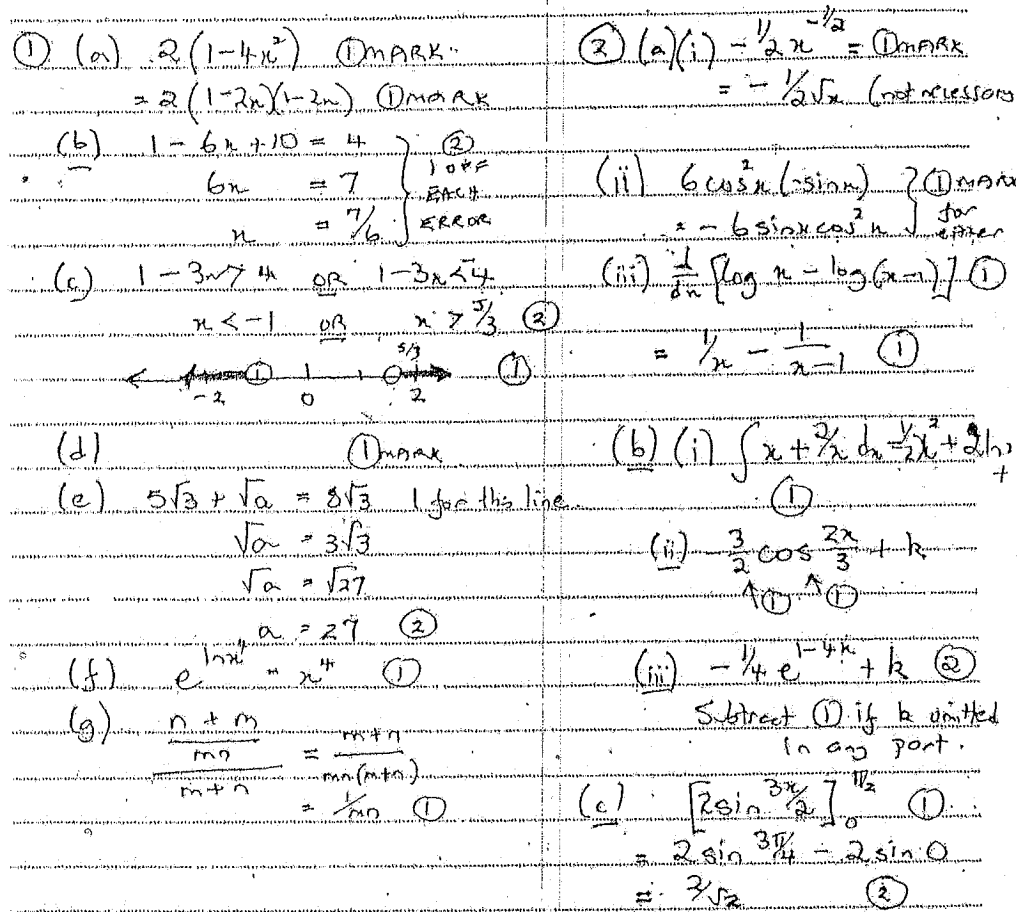 ① (a) 2(1-4x²) ① MARK
= 2(1-2x)(1-2x) ① MARK
(b) 1 - 6x + 10 = 4
6x = 7
x = 7/6
② 1 OFF EACH ERROR
(c) 1 - 3x > 4 OR 1 - 3x < -4
x < -1 OR x > 5/3 ②
-2 0 5/3 2 ①
(d) ① MARK
(e) 5√3 + √a = 8√3 1 for this line.
√a = 3√3
√a = √27
a = 27 ②
(f) e^{ln x⁴} = x⁴ ①
(g) ((n + m)/mn)/(m + n) = (m + n)/(mn(m + n))
= 1/mn ①
② (a)(i) - 1/2 x^{-1/2} = ① MARK
= - 1/2√x (not necessary
(ii) 6 cos²x (-sin x)
= - 6 sin x cos²x
① MARK for either
(iii) d/dx [log x - log(x-1)] ①
= 1/x - 1/(x-1) ①
(b) (i) ∫ x + 2/x dx = 1/2 x² + 2 ln
+
①
(ii) - 3/2 cos 2x/3 + k
↑① ↑①
(iii) - 1/4 e^{1-4x} + k ②
Subtract ① if k omitted
in any part.
(c) [2 sin 3x/2]₀^{π/2} ①
= 2 sin 3π/4 - 2 sin 0
= 2/√2 ②